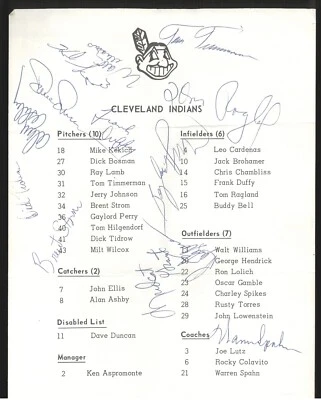 Tom Timmerman
CLEVELAND INDIANS
Pitchers (10)
18 Mike Kekich
27 Dick Bosman
30 Ray Lamb
31 Tom Timmerman
32 Jerry Johnson
34 Brent Strom
36 Gaylord Perry
40 Tom Hilgendorf
41 Dick Tidrow
43 Milt Wilcox
Catchers (2)
7 John Ellis
8 Alan Ashby
Disabled List
11 Dave Duncan
Manager
2 Ken Aspromonte
Infielders (6)
Leo Cardenas
10 Jack Brohamer
14 Chris Chambliss
15 Frank Duffy
16 Tom Ragland
25 Buddy Bell
Outfielders (7)
Walt Williams
George Hendrick
22 Ron Lolich
23 Oscar Gamble
24 Charley Spikes
28 Rusty Torres
29 John Lowenstein
Coaches
3 Joe Lutz
6 Rocky Colavito
21 Warren Spahn
Warren Spahn
Brent Strom